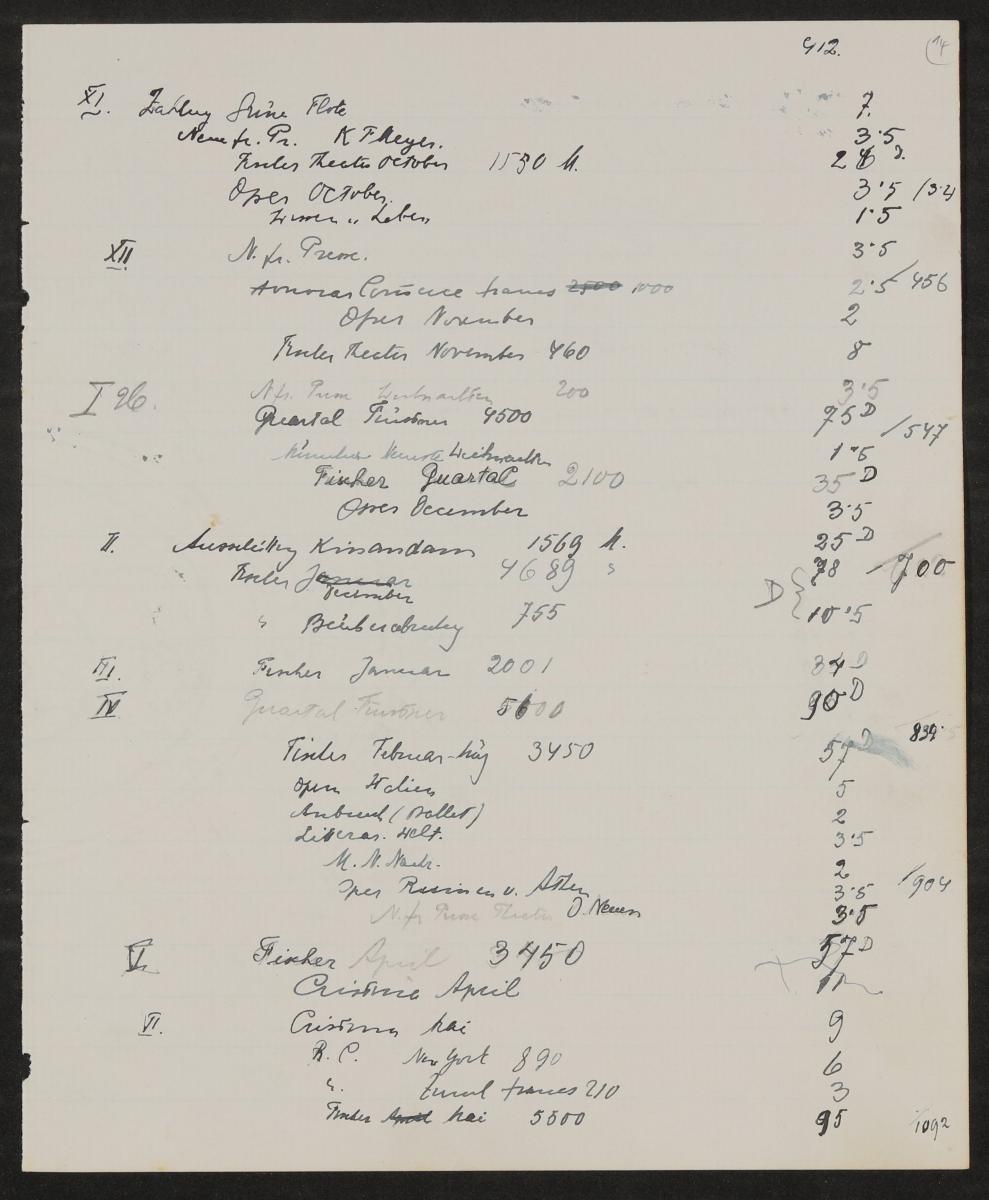 412. 14
XI. Zahlung Grüne Flöte 7.
Neue fr. Pr. K F Meyer. 3·5
Theater October 1530 M. 28 D.
Oper October. 3·5 /
Wissen u. Leben 1·5
XII N. fr. Presse. 3·5
Honorar francs 2500 1000 2·5 / 456
Oper November 2
Theater November 460 8
I 26. N. fr. Presse Weihnachten 200 3·5
Quartal Fürstner 4500 75 D / 547
Münchner Neueste Weihnachten 1·5
Fischer Quartal 2100 35 D
Oper December 3·5
II. Kissandam 1569 M. 25 D
Fischer Januar 4689 " 78 / 700
December D
" 755 10·5
III. Fischer Januar 2001 34 D
IV Quartal Fürstner 5600 90 D
839·5
Fischer Februar-März 3450 57 D
Opern Italien 5
Anbruch (Ballet) 2
Litterar. Welt. 3·5
M. N. Nachr. 2 / 904
Oper 3·5
N. fr. Presse Theater D. Neuen 3·5
V. Fischer April 3450 57 D
Cristina April 11
VI. Cristina Mai 9
R. C. New York 890 6
". francs 210 3
Fischer April Mai 5500 95 / 1092